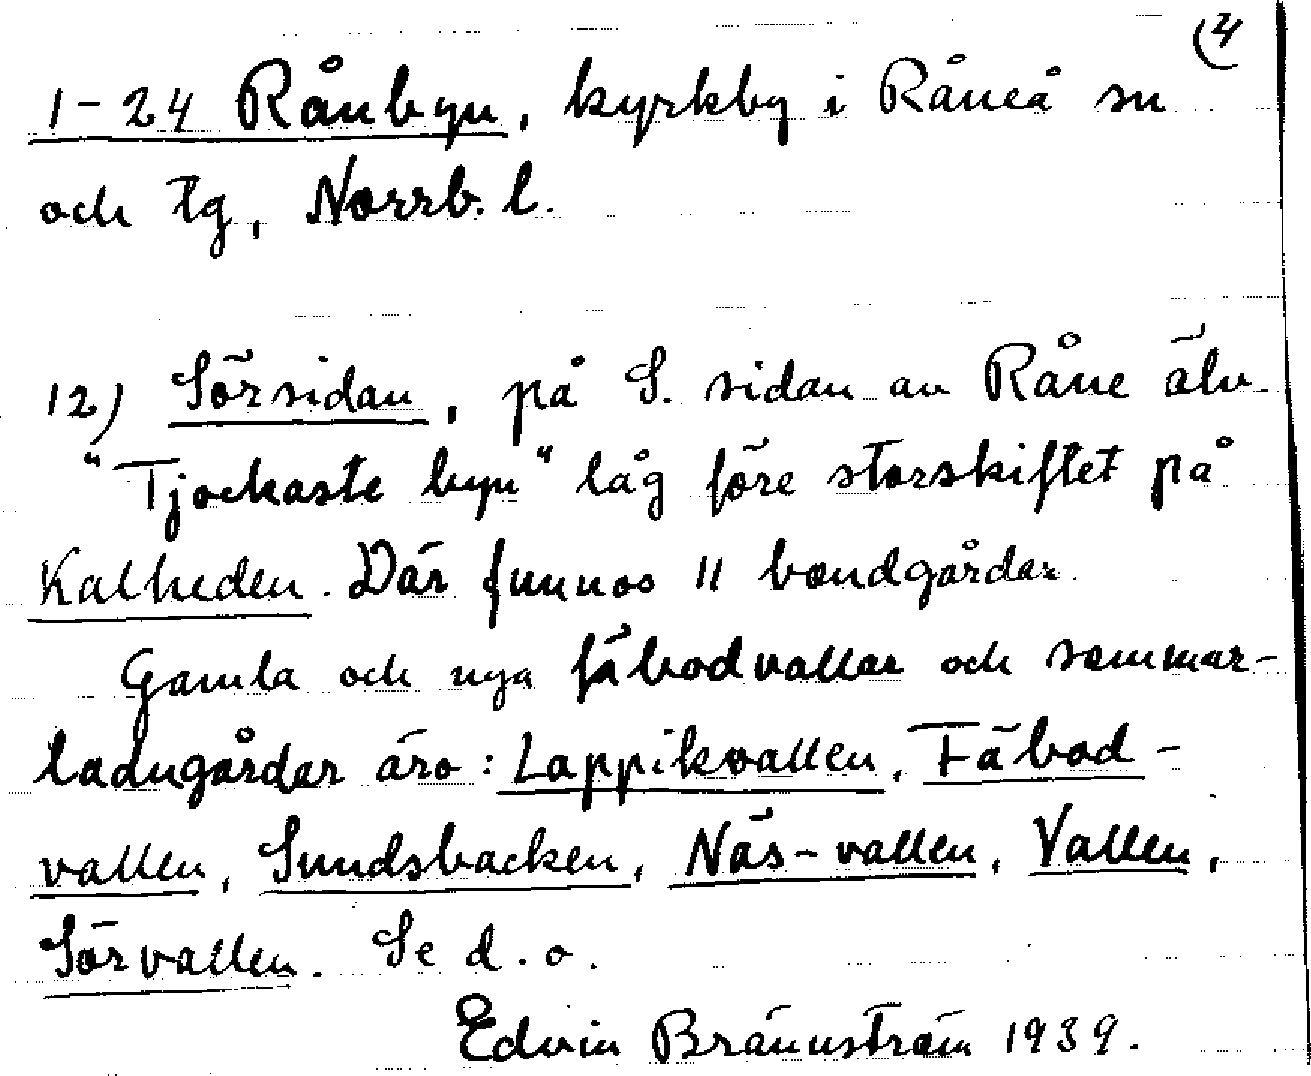 (4
1-24 Rånbyn, kyrkby i Råneå sn
och tg, Norrb. l.
12) Sörsidan, på S. sidan av Råne älv
"Tjockaste byn" låg före storskiftet på
Kalheden. Där funnos 11 bondgårdar.
Gamla och nya fäbodvallar och sommar-
ladugårdar äro: Lappikvallen, Fäbod-
vallen, Sundsbacken, Näs-vallen, Vallen,
Sörvallen. Se d. o.
Edvin Brännström 1939.